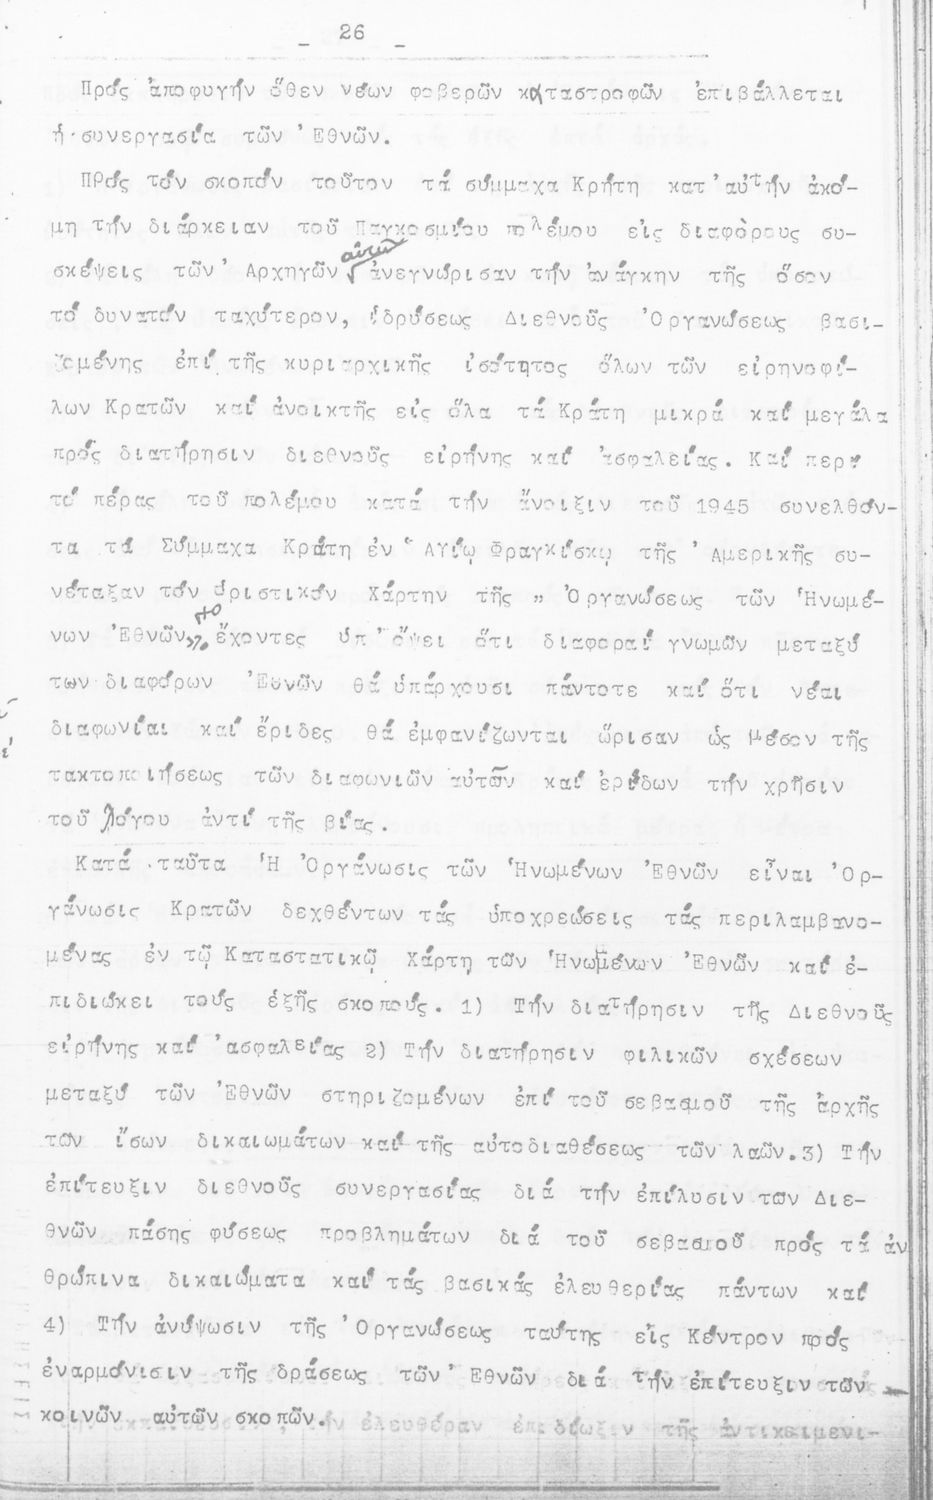 _ 26 _
Πρός ἀποφυγήν ὅθεν νέων φοβερῶν καταστροφῶν ἐπιβάλλεται
ἡ συνεργασία τῶν Ἐθνῶν.
Πρός τόν σκοπόν τοῦτον τά σύμμαχα Κρήτη κατ'αὐτήν ἀκό-
μη τήν διάρκειαν τοῦ Παγκοσμίου πολέμου εἰς διαφόρους συ-
αὐτῶν
σκέψεις τῶν Ἀρχηγῶν ἀνεγνώρισαν τήν ἀνάγκην τῆς ὅσον
τό δυνατόν ταχύτερον, ἱδρύσεως Διεθνοῦς Ὀργανώσεως βασι-
ζομένης ἐπί τῆς κυριαρχικῆς ἰσότητος ὅλων τῶν εἰρηνοφί-
λων Κρατῶν καί ἀνοικτῆς εἰς ὅλα τά Κράτη μικρά καί μεγάλα
πρός διατήρησιν διεθνοῦς εἰρήνης καί ἀσφαλείας. Καί περί
τό πέρας τοῦ πολέμου κατά τήν ἄνοιξιν τοῦ 1945 συνελθόν-
τα τά Σύμμαχα Κράτη ἐν Ἁγίῳ Φραγκίσκῳ τῆς Ἀμερικῆς συ-
νέταξαν τόν ὁριστικόν Χάρτην τῆς " Ὀργανώσεως τῶν Ἡνωμέ-
νων Ἐθνῶν" ἔχοντες ὑπ' ὄψει ὅτι διαφοραί γνωμῶν μεταξύ
των διαφόρων Ἐθνῶν θά ὑπάρχουσι πάντοτε καί ὅτι νέαι
διαφωνίαι καί ἔριδες θά ἐμφανίζωνται ὥρισαν ὡς μέσον τῆς
τακτοποιήσεως τῶν διαφωνιῶν αὐτῶν καί ἐρίδων τήν χρῆσιν
τοῦ λόγου ἀντί τῆς βίας.
Κατά ταῦτα Ἡ Ὀργάνωσις τῶν Ἡνωμένων Ἐθνῶν εἶναι Ὀρ-
γάνωσις Κρατῶν δεχθέντων τάς ὑποχρεώσεις τάς περιλαμβανο-
μένας ἐν τῷ Καταστατικῷ Χάρτη τῶν Ἡνωμένων Ἐθνῶν καί ἐ-
πιδιώκει τούς ἑξῆς σκοπούς. 1) Τήν διατήρησιν τῆς Διεθνοῦς
εἰρήνης καί ἀσφαλείας 2) Τήν διατήρησιν φιλικῶν σχέσεων
μεταξύ τῶν Ἐθνῶν στηριζομένων ἐπί τοῦ σεβασμοῦ τῆς ἀρχῆς
τῶν ἴσων δικαιωμάτων καί τῆς αὐτοδιαθέσεως τῶν λαῶν.3) Τήν
ἐπίτευξιν διεθνοῦς συνεργασίας διά τήν ἐπίλυσιν των Διε-
θνῶν πάσης φύσεως προβλημάτων διά τοῦ σεβασμοῦ πρός τά ἀν
θρώπινα δικαιώματα καί τάς βασικάς ἐλευθερίας πάντων καί
4) Τήν ἀνύψωσιν τῆς Ὀργανώσεως ταύτης εἰς Κέντρον πρός
ἐναρμόνισιν τῆς δράσεως τῶν Ἐθνῶν διά τήν ἐπίτευξιν τῶν
κοινῶν αὐτῶν σκοπῶν.